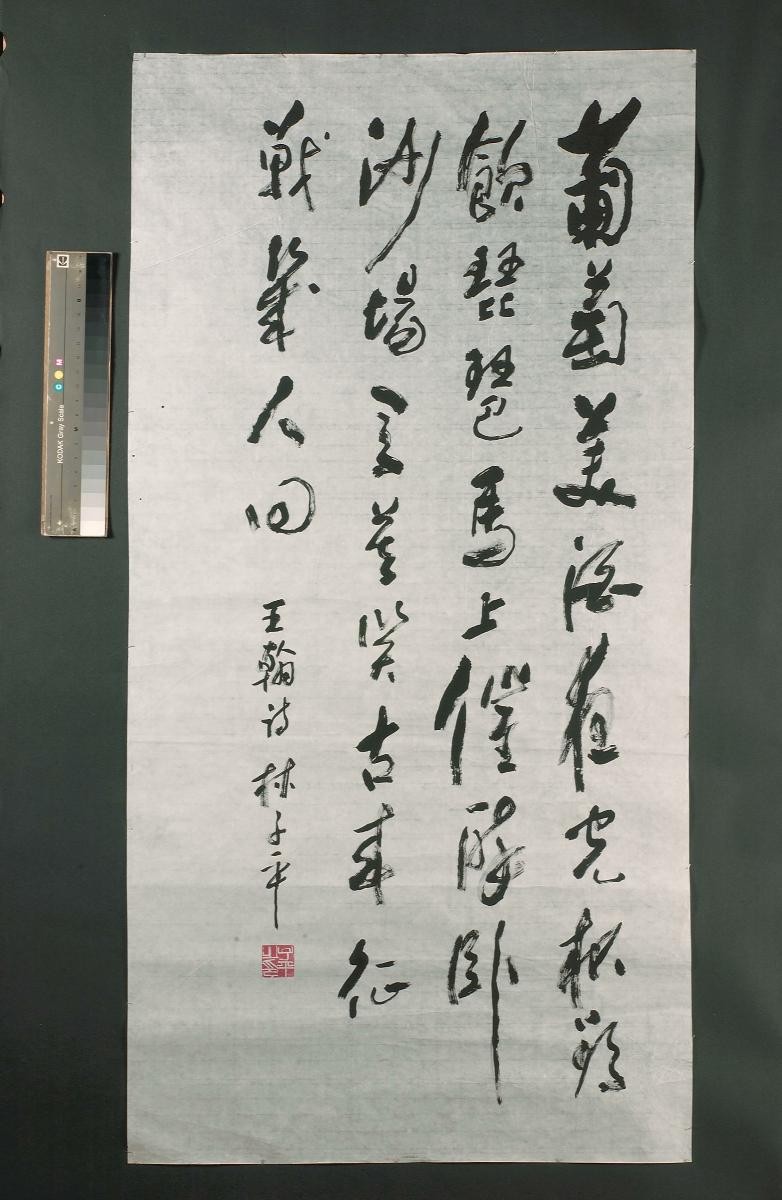 葡萄美酒夜光杯欲
飲琵琶馬上催醉臥
沙場君莫笑古來征
戰幾人回
王翰詩 林子平
子平之印
KODAK Gray Scale
C Y M